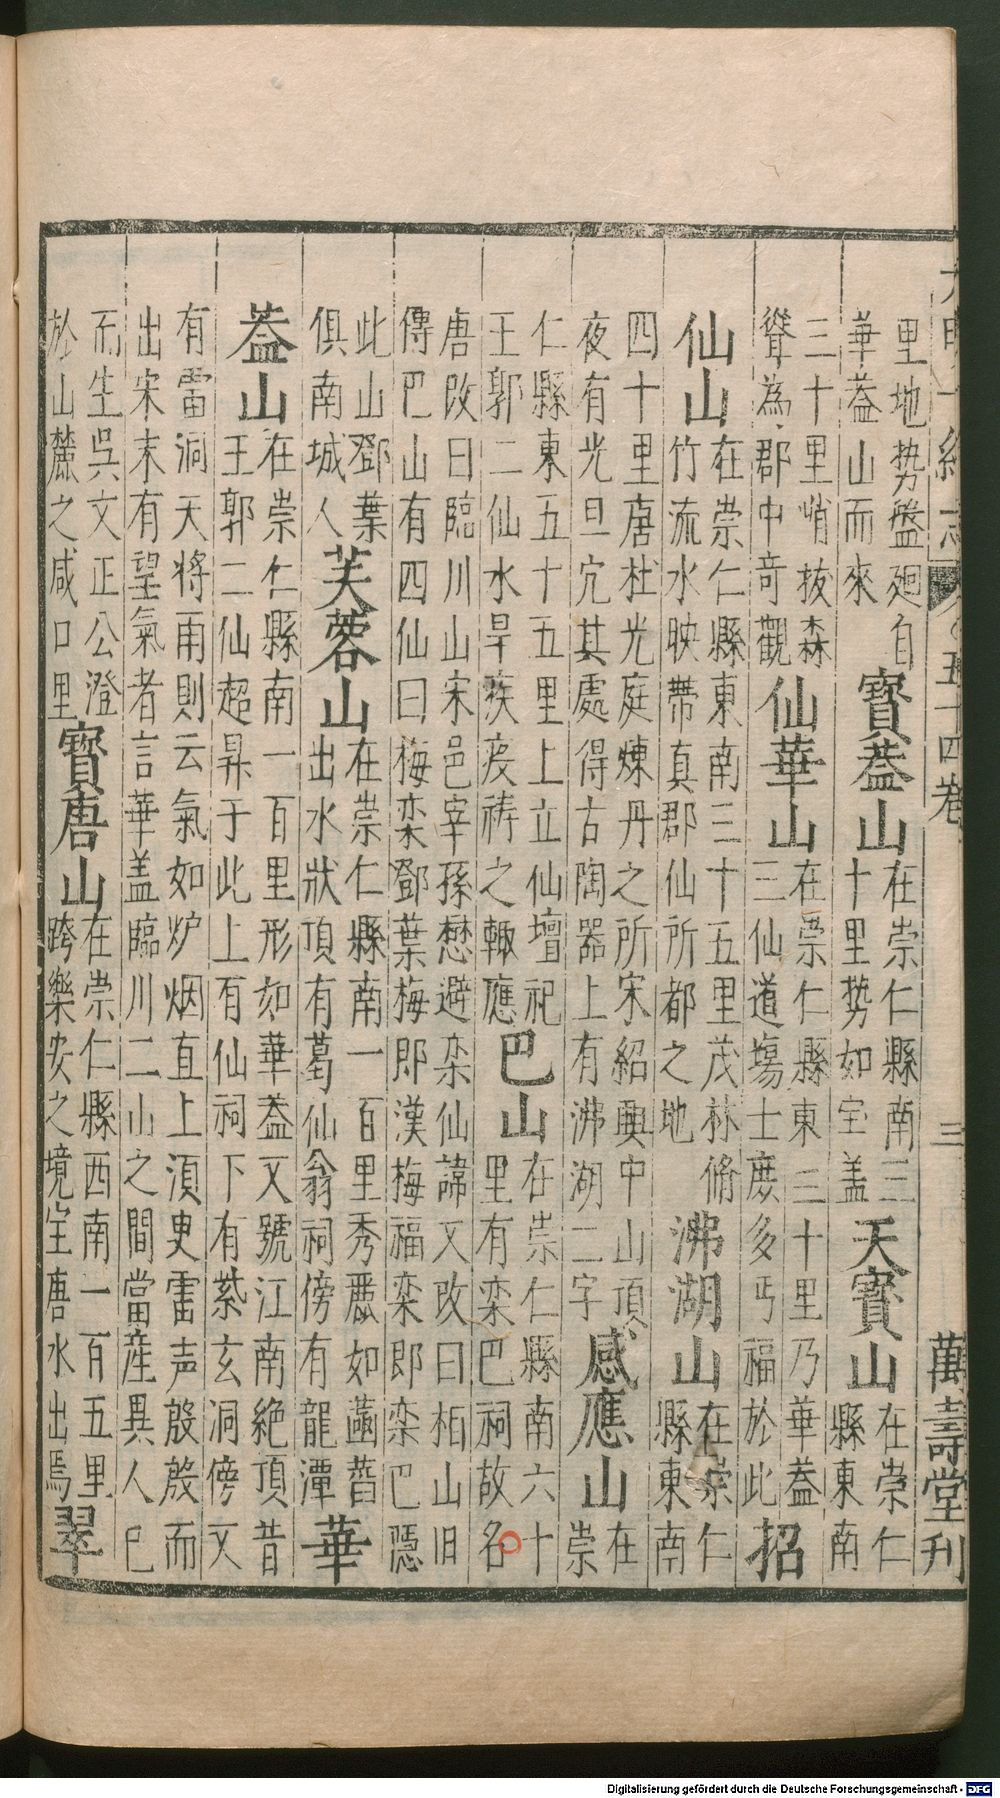 大明一統志 五十四卷 三 萬壽堂刊
里地势盤廻自
華葢山而來
寶葢山
在崇仁縣南三
十里勢如宝盖
天寶山
在崇仁
縣東南
三十里峭拔森
聳為郡中竒觀
仙華山
在崇仁縣東三十里乃華葢
三仙道塲士庶多丐福於此
招
仙山
在崇仁縣東南三十五里茂林脩
竹流水映帶真郡仙所都之地
沸湖山
在崇仁
縣東南
四十里唐杜光庭煉丹之所宋紹興中山頂
夜有光旦宂其處得古陶器上有沸湖二字
感應山
在
崇
仁縣東五十五里上立仙壇祀
王郭二仙水旱疾疫祷之輙應
巴山
在崇仁縣南六十
里有栾巴祠故名
唐改曰臨川山宋邑宰孫懋避栾仙諱又改曰相山旧
傳巴山有四仙曰梅栾鄧葉梅即漢梅福栾即栾巴隱
此山鄧葉
俱南城人
芙蓉山
在崇仁縣南一百里秀麗如菡萏
出水狀頂有葛仙翁祠傍有龍潭
華
葢山
在崇仁縣南一百里形如華葢又號江南絶頂昔
王郭二仙超昇于此上有仙祠下有紫玄洞傍又
有雷洞天將雨則云氣如炉烟直上湏臾雷声殷殷而
出宋末有望氣者言華盖臨川二山之間當産異人已
而生吳文正公澄
於山麓之咸口里
寶唐山
在崇仁縣西南一百五里
跨樂安之境宝唐水出焉
翠
Digitalisierung gefördert durch die Deutsche Forschungsgemeinschaft - DFG